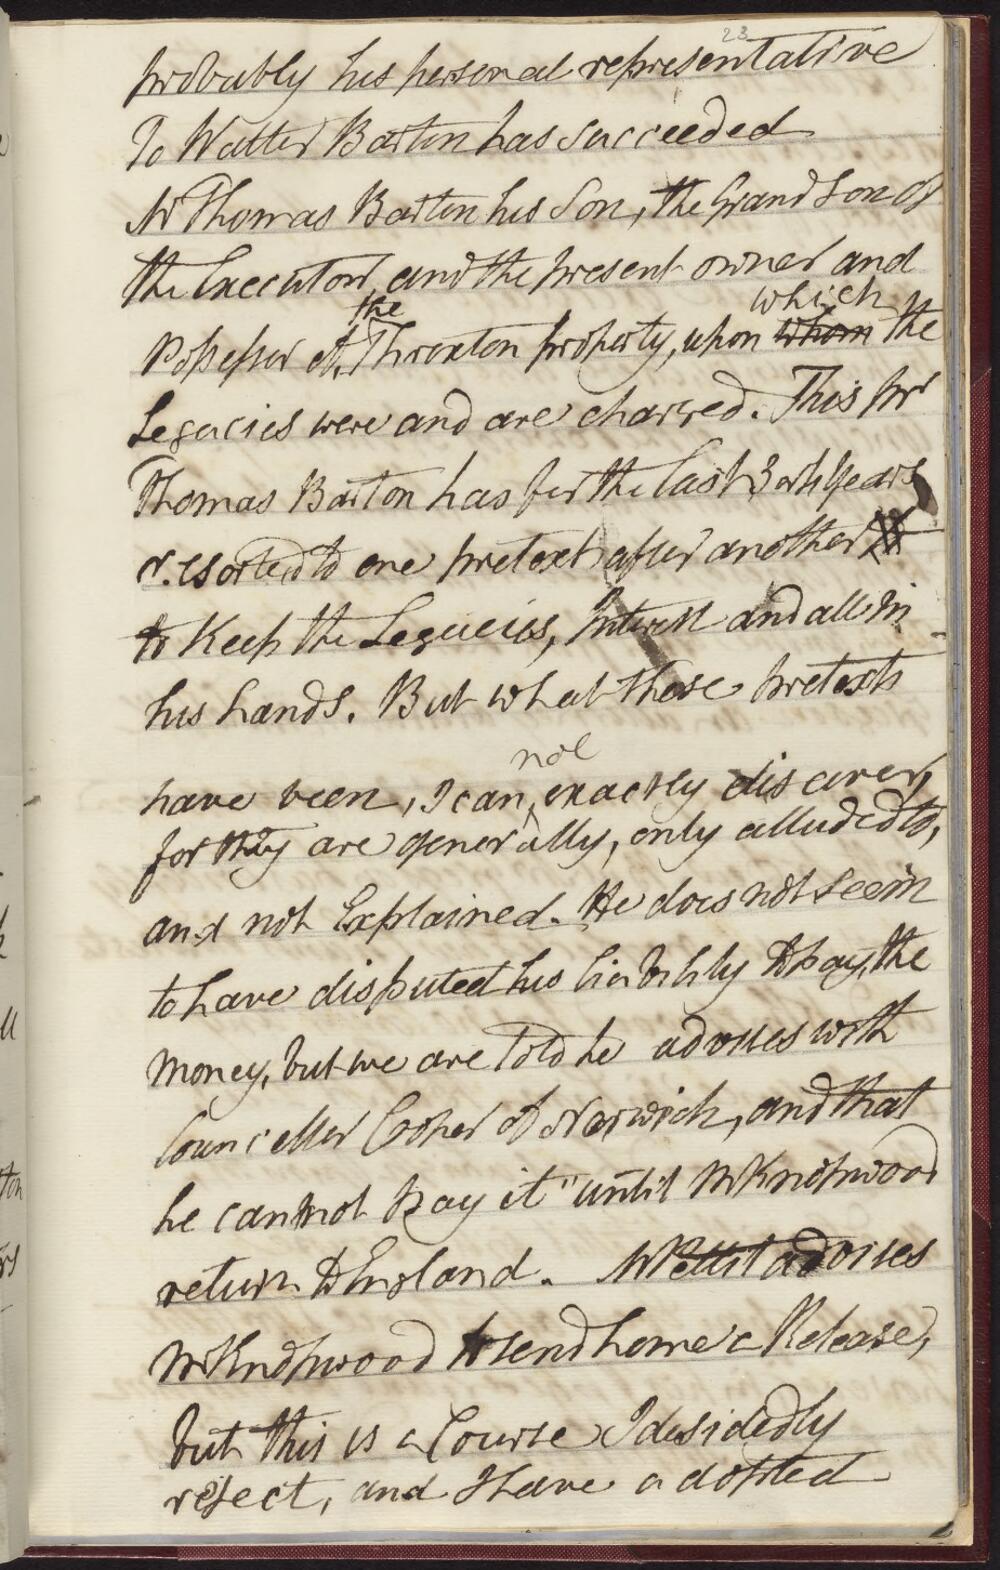 23
probably his personal representative
To Walter Barton has succeeded
Mr Thomas Barton his Son, the Grand Son of
the Executor, and the present owner and
Possessor of the Threxton property, upon which whom the
Legacies were and are charged. This Mr
Thomas Barton has for the last 3 or 4 years
resorted to one pretext after another
to Keep the Legacies, Interest and all in
his hands. But what these pretexts
have been, I can not exactly discover,
for they are generally, only alluded to,
and not Explained. He does not seem
to have disputed his liability to pay, the
money, but we are told he advises with
Councellor Cooper of Norwich, and that
he cannot pay it "until Mr Knopwood
return to England. Mr Pettit advises
Mr Knopwood to send home a Release,
but this is a Course I desidedly
reject, and I have adopted